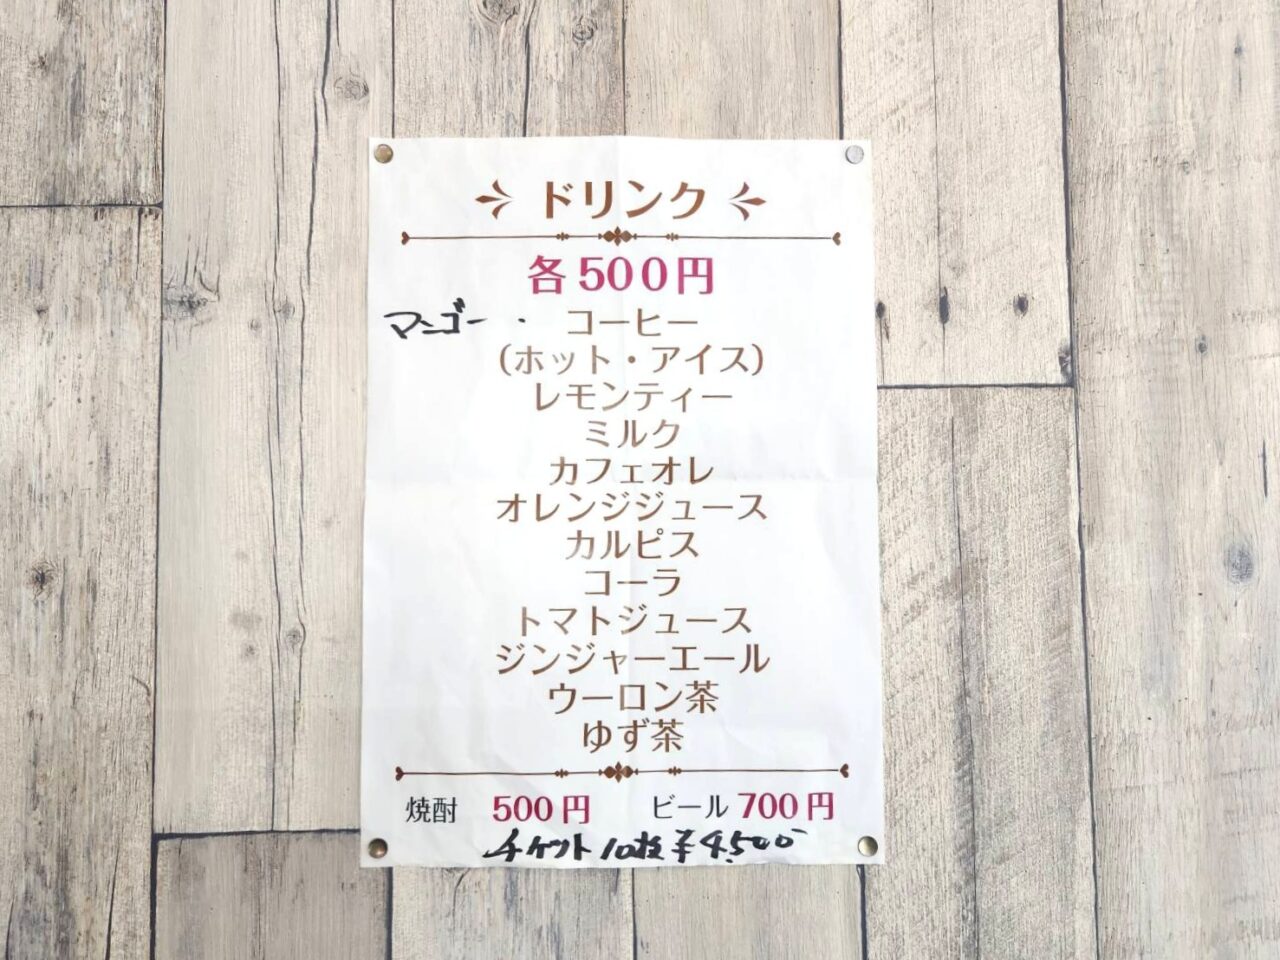 ドリンク
各500円
マンゴー ・ コーヒー
(ホット・アイス)
レモンティー
ミルク
カフェオレ
オレンジジュース
カルピス
コーラ
トマトジュース
ジンジャーエール
ウーロン茶
ゆず茶
焼酎 500円 ビール 700円
チケット10枚¥4,500-